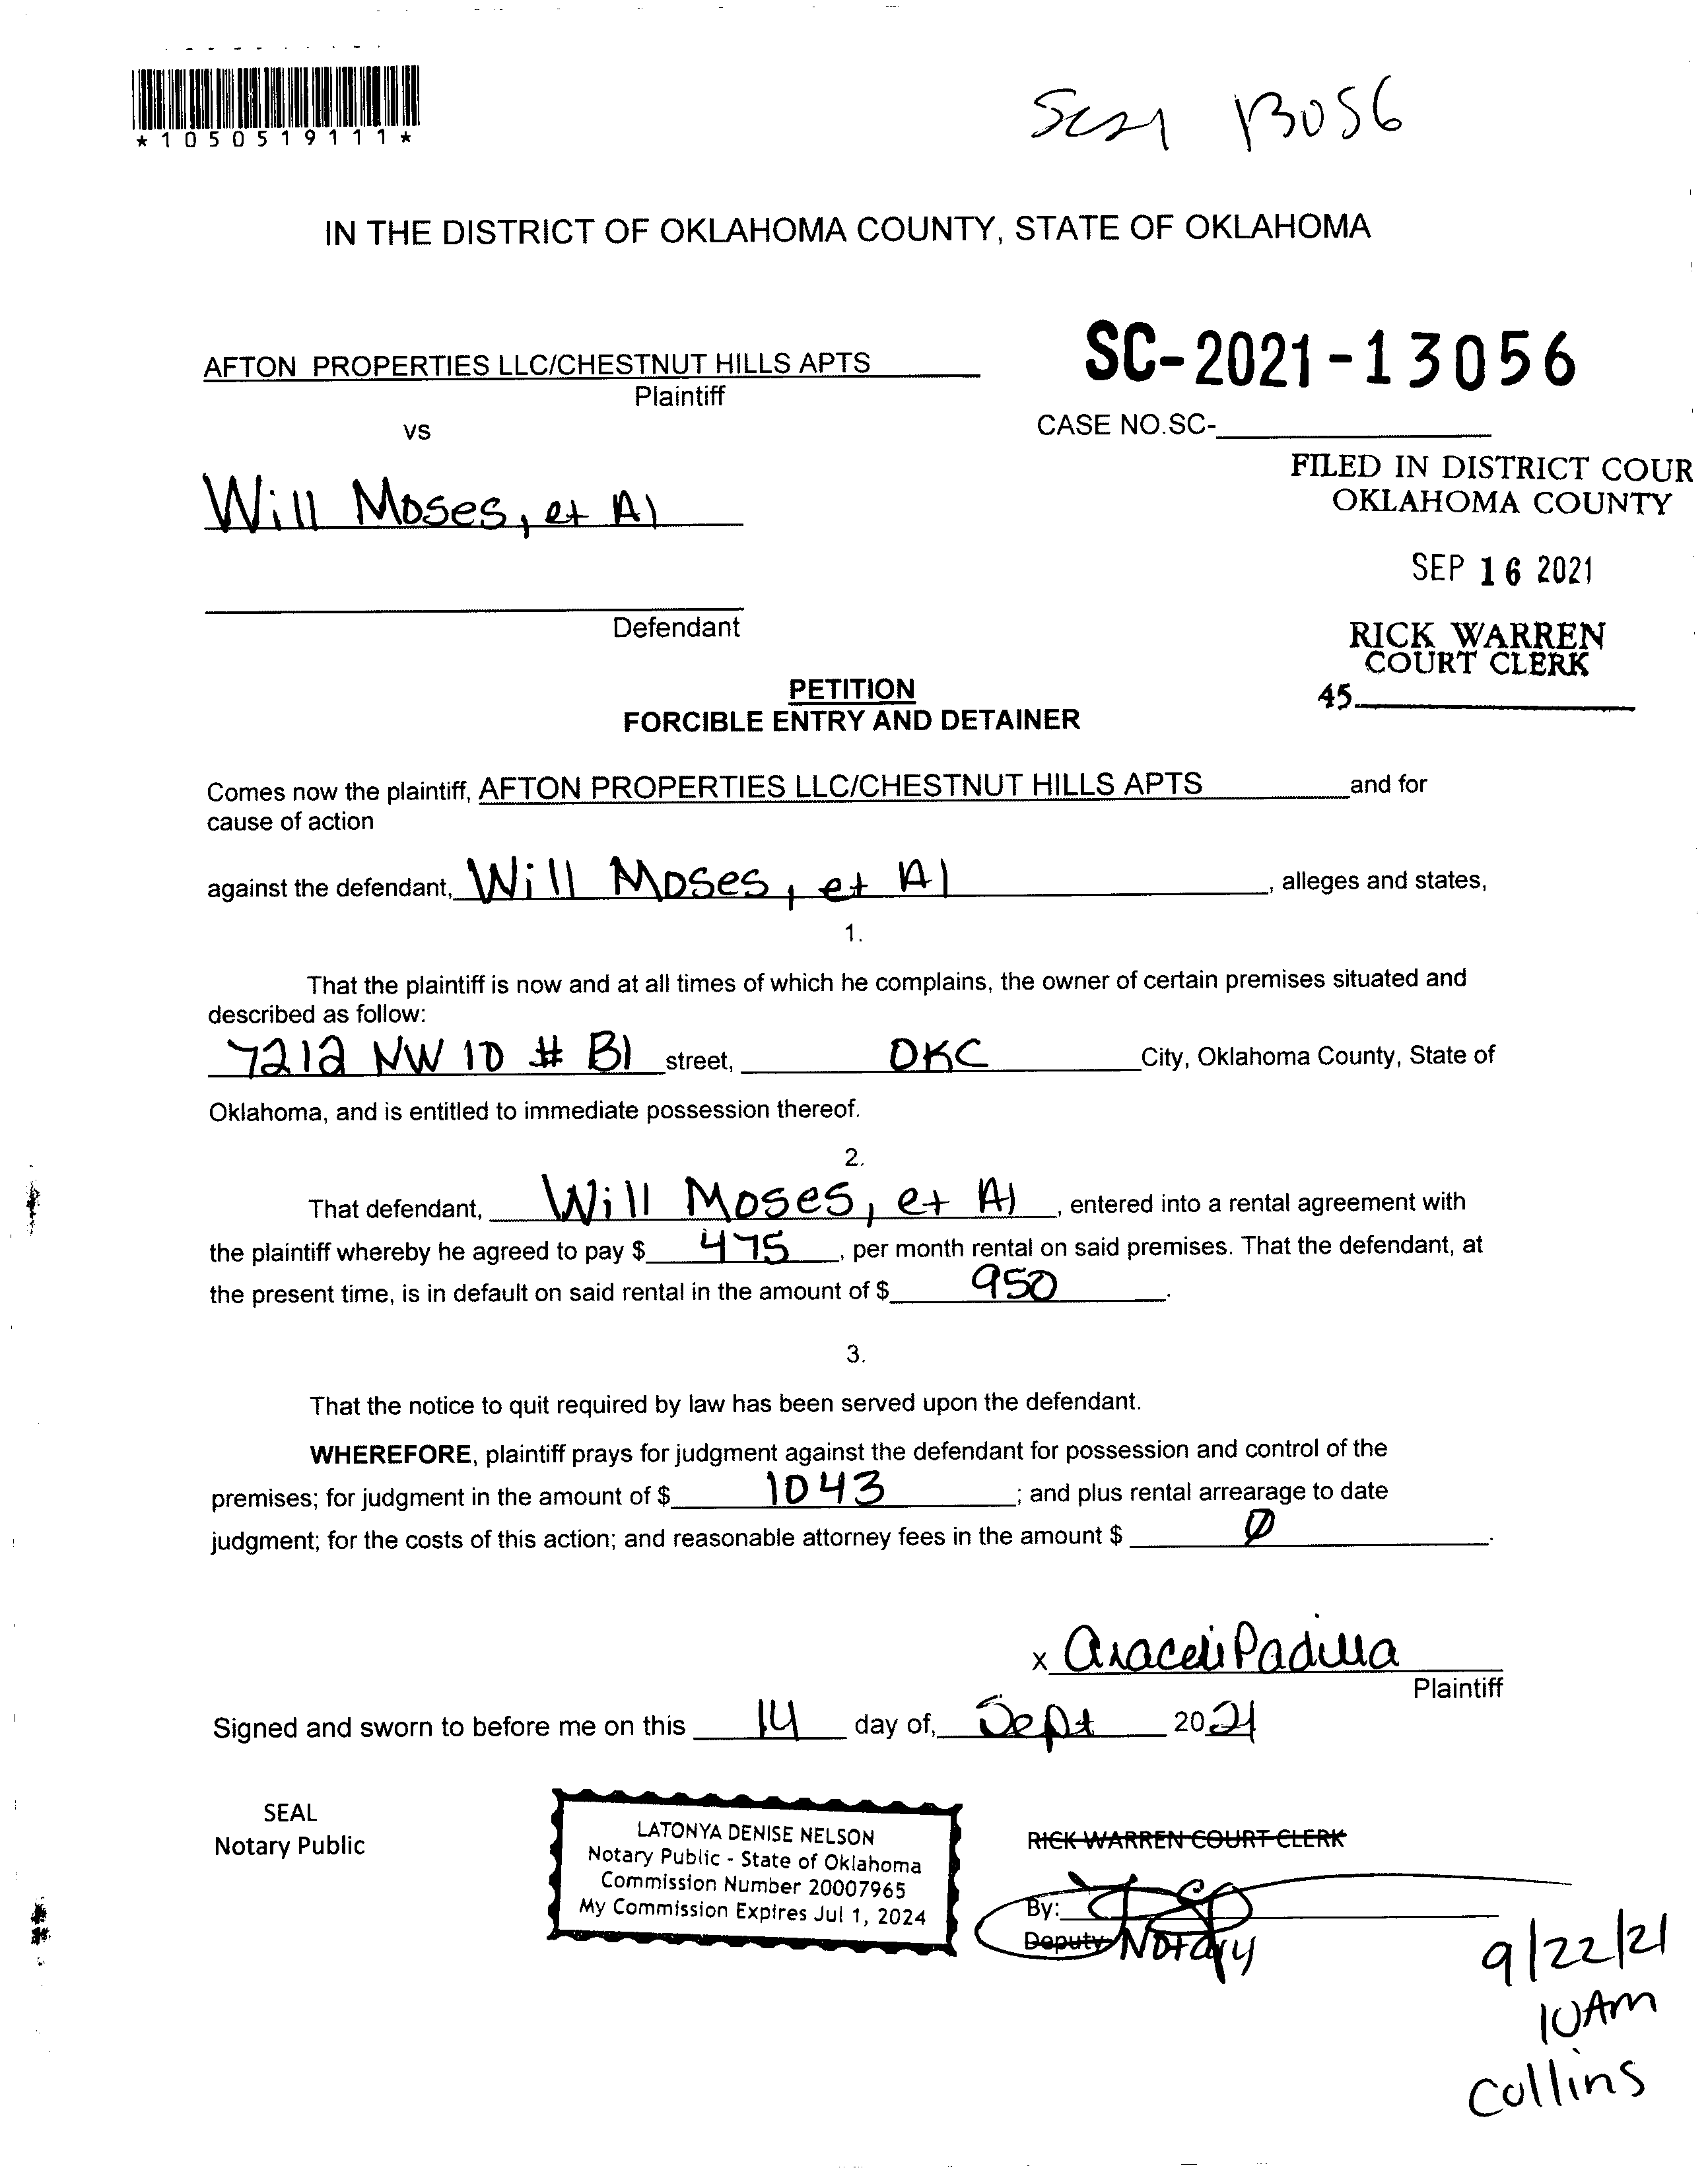 *1050519111*
SC21 13056
IN THE DISTRICT OF OKLAHOMA COUNTY, STATE OF OKLAHOMA
AFTON PROPERTIES LLC/CHESTNUT HILLS APTS
Plaintiff
SC-2021-13056
vs
CASE NO.SC-
FILED IN DISTRICT COUR
OKLAHOMA COUNTY
Will Moses, et Al
SEP 16 2021
Defendant
RICK WARREN
COURT CLERK
45
PETITION
FORCIBLE ENTRY AND DETAINER
Comes now the plaintiff, AFTON PROPERTIES LLC/CHESTNUT HILLS APTS and for
cause of action
against the defendant, Will Moses, et Al, alleges and states,
1.
That the plaintiff is now and at all times of which he complains, the owner of certain premises situated and
described as follow:
7212 NW 10 # B1 street, OKC City, Oklahoma County, State of
Oklahoma, and is entitled to immediate possession thereof.
2.
That defendant, Will Moses, et Al, entered into a rental agreement with
the plaintiff whereby he agreed to pay $ 475, per month rental on said premises. That the defendant, at
the present time, is in default on said rental in the amount of $ 950.
3.
That the notice to quit required by law has been served upon the defendant.
WHEREFORE, plaintiff prays for judgment against the defendant for possession and control of the
premises; for judgment in the amount of $ 1043; and plus rental arrearage to date
judgment; for the costs of this action; and reasonable attorney fees in the amount $ 0.
x Araceli Padilla
Plaintiff
Signed and sworn to before me on this 14 day of, Sept 2021
SEAL
Notary Public
LATONYA DENISE NELSON
Notary Public - State of Oklahoma
Commission Number 20007965
My Commission Expires Jul 1, 2024
RICK WARREN COURT CLERK
By:
Deputy Notary
9/22/21
10AM
Collins